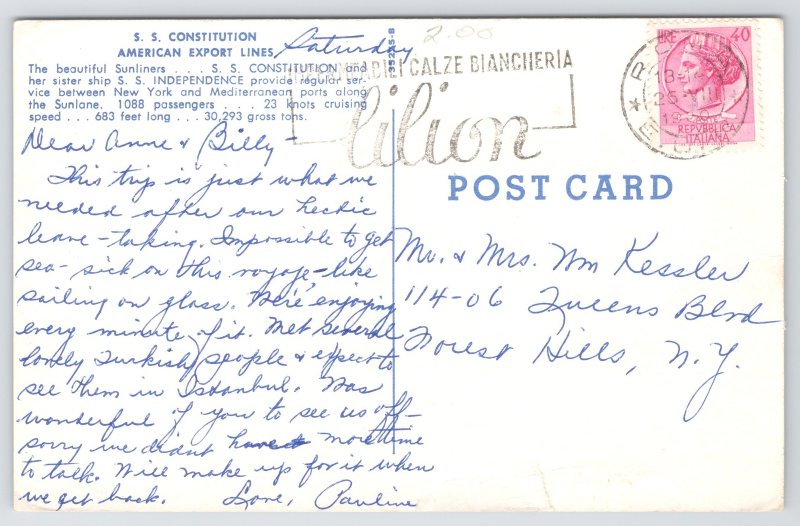 S. S. CONSTITUTION
AMERICAN EXPORT LINES
The beautiful Sunliners . . . S. S. CONSTITUTION and
her sister ship S. S. INDEPENDENCE provide regular ser-
vice between New York and Mediterranean ports along
the Sunlane. 1088 passengers . . . 23 knots cruising
speed . . . 683 feet long . . . 30,293 gross tons.
Saturday
Dear Anne & Billy-
This trip is just what we
needed after our hectic
leave-taking. Impossible to get
sea-sick on this voyage-like
sailing on glass. We're enjoying
every minute of it. Met several
lovely Turkish people & expect to
see them in Istanbul. Was
wonderful of you to see us off-
sorry we didnt have more time
to talk. Will make up for it when
we get back. Love, Pauline
2.00
CALZE BIANCHERIA
lilion
LIRE 40
REPVBBLICA
ITALIANA
POST CARD
Mr. & Mrs. Wm Kessler
114-06 Queens Blvd
Forest Hills, N.Y.